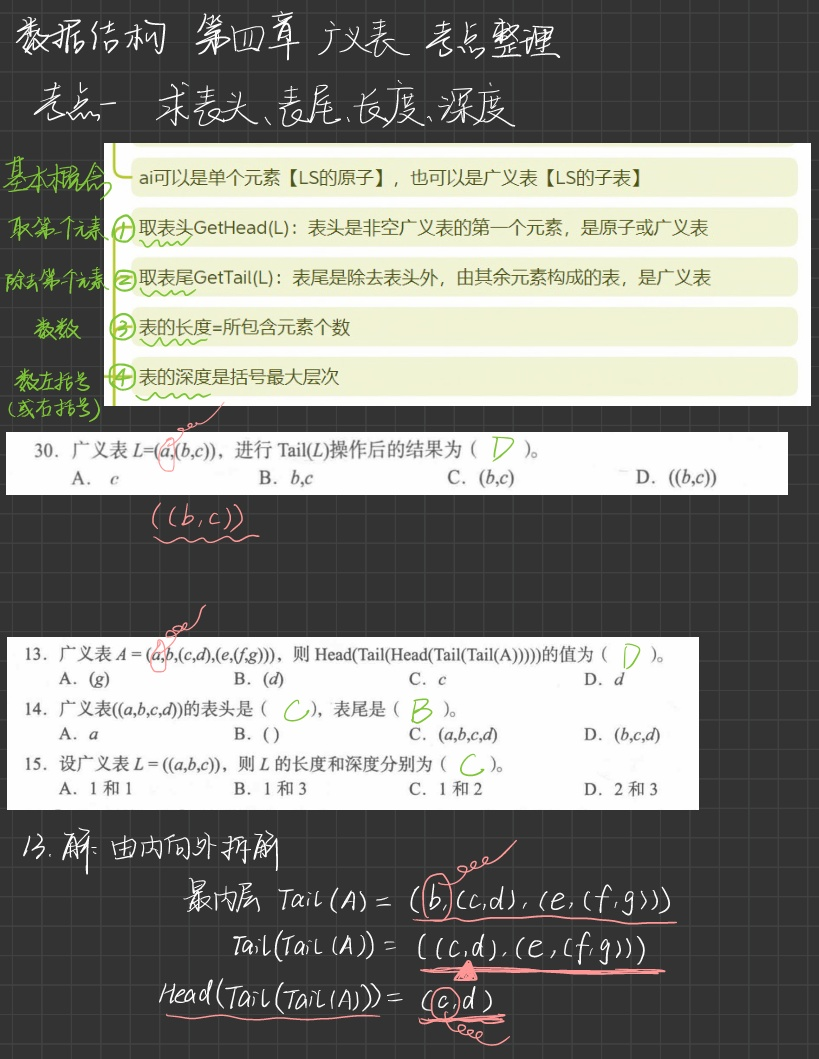 数据结构 第四章 广义表 考点整理
考点一 求表头、表尾、长度、深度
基本概念
ai可以是单个元素【LS的原子】，也可以是广义表【LS的子表】
取第一个元素 ① 取表头GetHead(L)：表头是非空广义表的第一个元素，是原子或广义表
除去第一个元素 ② 取表尾GetTail(L)：表尾是除去表头外，由其余元素构成的表，是广义表
数数 ③ 表的长度=所包含元素个数
数左括号 ④ 表的深度是括号最大层次
(或右括号)
30．广义表 L=(a,(b,c))，进行 Tail(L)操作后的结果为（ D ）。
A． c B．b,c C．(b,c) D．((b,c))
((b,c))
13．广义表 A = (a,b,(c,d),(e,(f,g)))，则 Head(Tail(Head(Tail(Tail(A)))))的值为（ D ）。
A．(g) B．(d) C．c D．d
14．广义表((a,b,c,d))的表头是（ C ），表尾是（ B ）。
A．a B．( ) C．(a,b,c,d) D．(b,c,d)
15．设广义表 L = ((a,b,c))，则 L 的长度和深度分别为（ C ）。
A．1 和 1 B．1 和 3 C．1 和 2 D．2 和 3
13. 解: 由内向外拆解
最内层 Tail(A) = (b,(c,d),(e,(f,g)))
Tail(Tail(A)) = ((c,d),(e,(f,g)))
Head(Tail(Tail(A))) = (c,d)